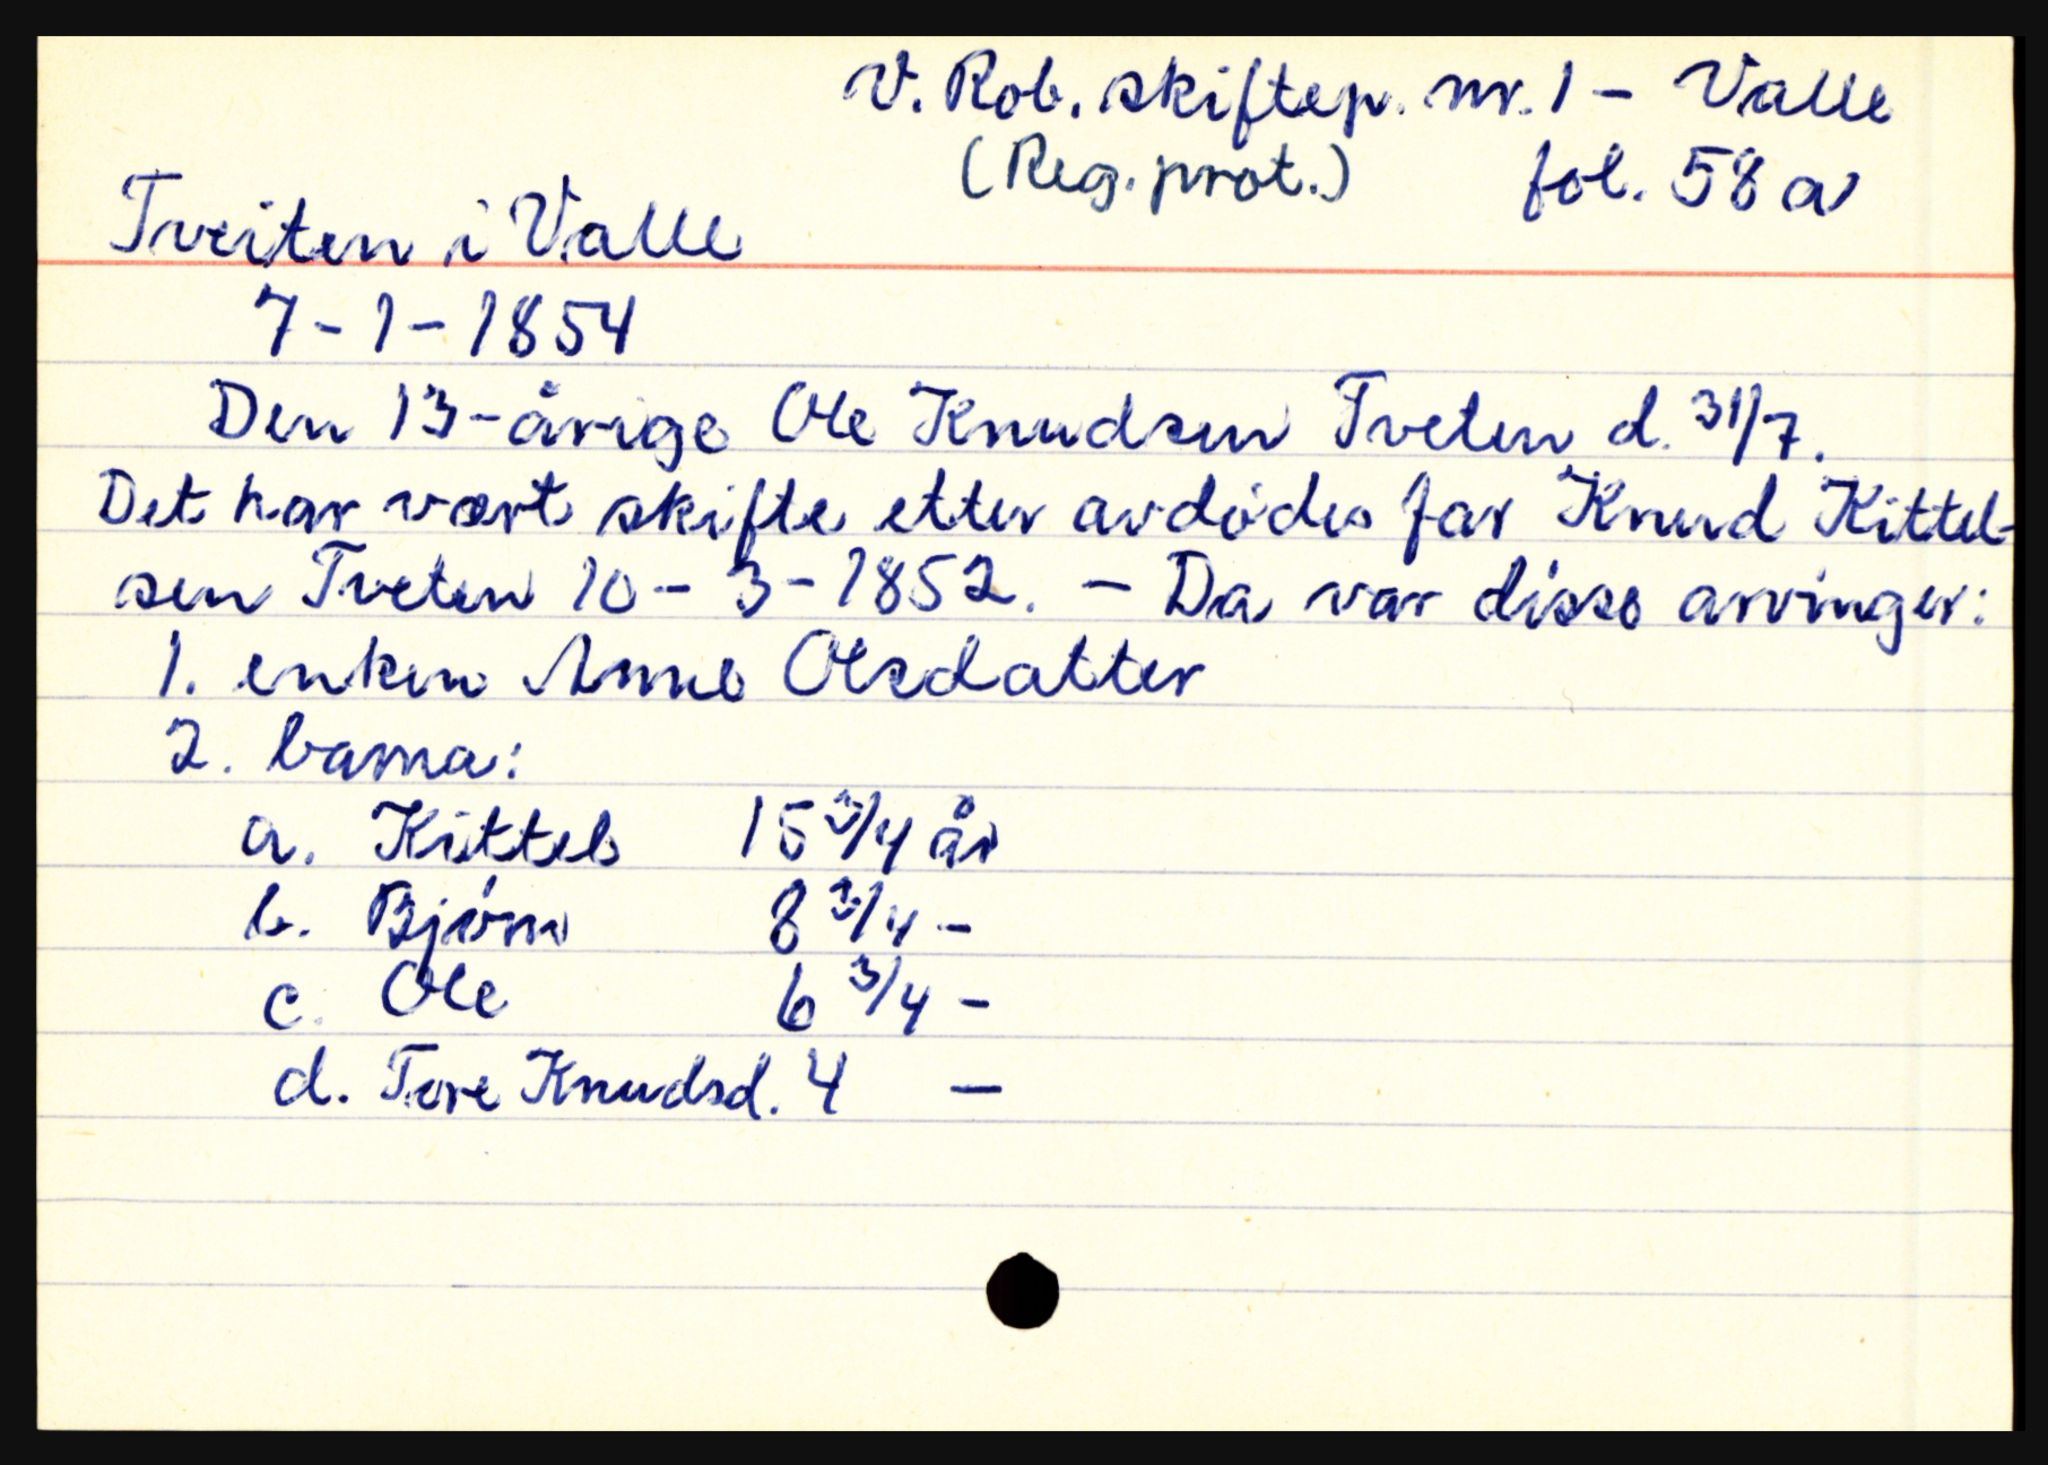 V. Rob. skiftep. nr. 1 - Valle
(Reg. prot.) fol. 58 a
Tveiten i Valle
7-1-1854
Den 13-årige Ole Knudsen Tveten d. 31/7.
Det har vært skifte etter avdødes far Knud Kittel-
sen Tveten 10-3-1852. - Da var disse arvinger:
1. enken Anne Olsdatter
2. barna:
a. Kittel 15 3/4 år
b. Bjørn 8 3/4 -
c. Ole 6 3/4 -
d. Tore Knudsd. 4 -